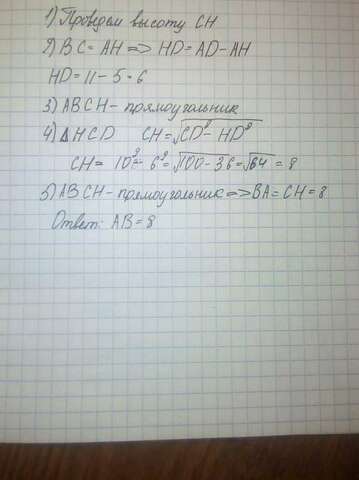 1) Проведем высоту CH
2) BC = AH => HD = AD - AH
HD = 11 - 5 = 6
3) ABCH - прямоугольник
4) △HCD CH = √CD² - HD²
CH = 10² - 6² = √100 - 36 = √64 = 8
5) ABCH - прямоугольник => BA = CH = 8
Ответ: AB = 8